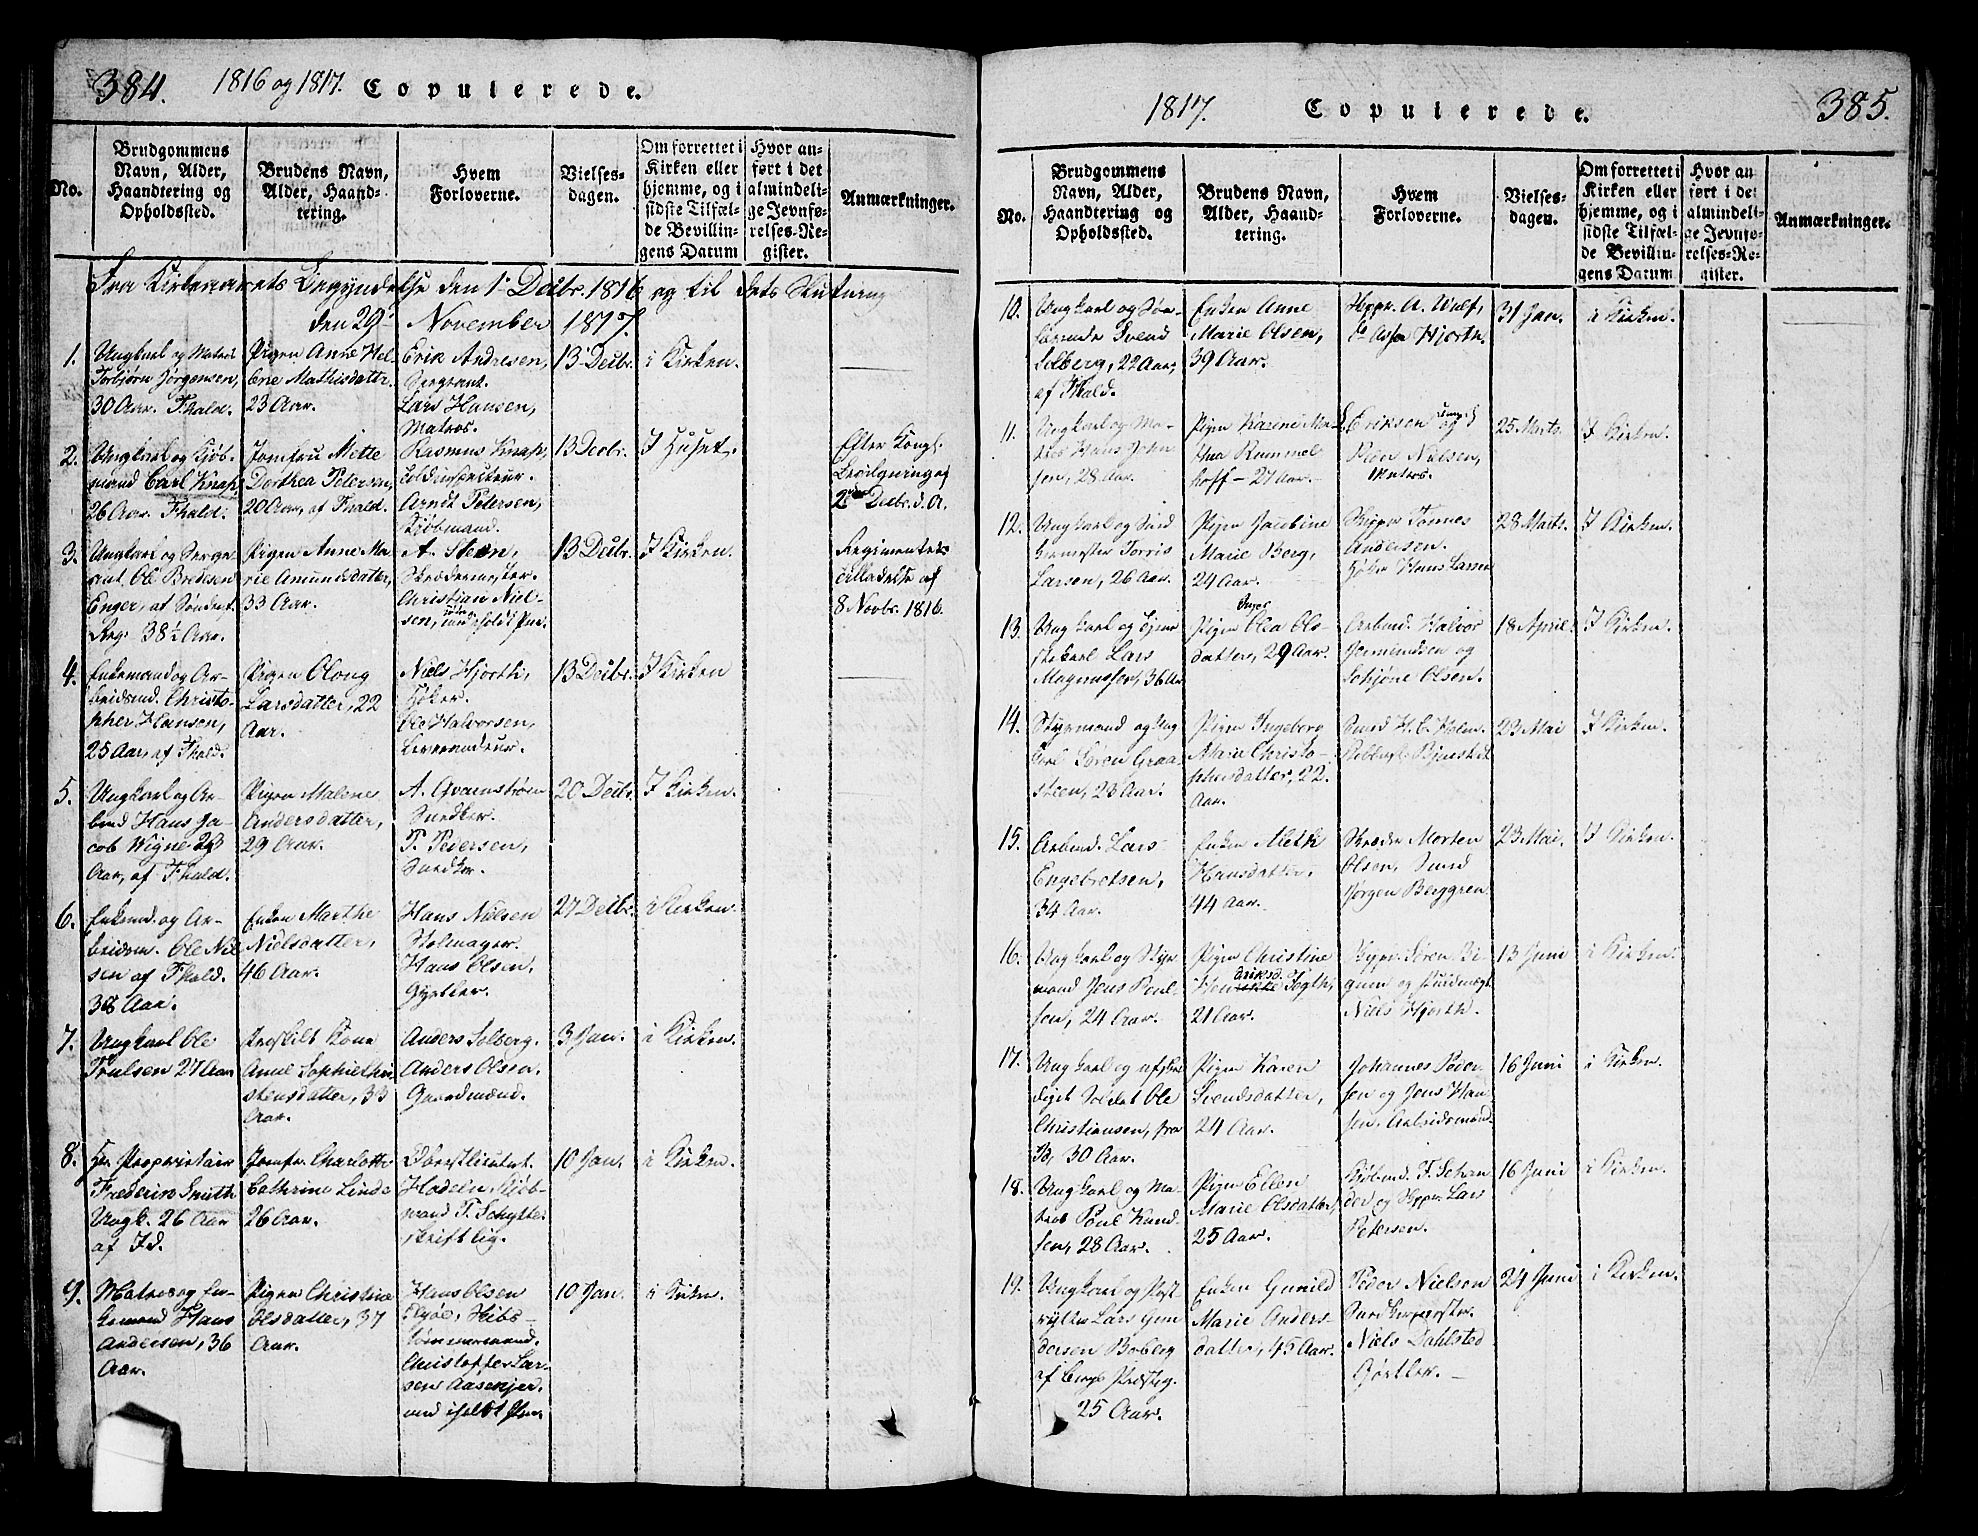 384.
1816 og 1817.
Copulerede.
No.
Brudgommens
Navn, Alder,
Haandtering og
Opholdssted.
Brudens Navn,
Alder, Haand-
tering.
Hvem
Forloverne.
Vielses-
dagen.
Om forrettet i
Kirken eller
hjemme, og i
sidste Tilfæl-
de Bevillin-
gens Datum
Hvor an-
ført i det
almindeli-
ge Jevnfø-
relses-Re-
gister.
Anmærkninger.
Fra Kirkeaarets Begyndelse den 1. Decbr. 1816 og til dets Slutning
den 29. November 1817.
1.
Ungkarl og Matros
Torbjørn Jørgensen,
30 Aar. Fhald.
Pigen Anne Hel-
ene Mathisdattr.
23 Aar.
Erik Andresen,
Sergeant.
Lars Hansen,
Matros.
13 Decbr.
i Kirken.
2.
Ungkarl og Kjøb-
mand Carl Knap,
26 Aar. Fhald.
Jomfru Mette
Dorthea Petersen,
20 Aar, af Fhald.
Rasmus Knap,
Toldinspecteur.
Arndt Petersen,
Kjøbmand.
13 Decbr.
I Huset.
Efter Kongl.
Bevilgning af
2 Decbr. d. A.
3.
Ungkarl og Serge-
ant Ole Bredesen
Enger, af Søndenf.
Reg. 38½ Aar.
Pigen Anne Ma-
rie Amundsdatter,
33 Aar.
A. Steen,
Skrædermester.
Christian Niel-
sen,
13 Decbr.
I Kirken.
Regimentets
Tilladelse af
8 Novbr. 1816.
4.
Enkemand og Ar-
beidsmd. Christo-
pher Hansen,
25 Aar, af Fhald.
Pigen Olong
Larsdatter, 22
Aar.
Niels Hjorth,
Høker.
Ole Halvorsen,
Leverandeur.
13 Decbr.
I Kirken
5.
Ungkarl og Ar-
bmd Hans Ja-
cob Wigne 28
Aar, af Fhald.
Pigen Malene
Andersdatter,
29 Aar.
A. Qvarnstrøm
Snedker.
P. Pedersen,
Snedker.
20 Decbr.
I Kirken.
6.
Enkemd. og Ar-
beidsm. Ole Niel-
sen af Fhald.
38 Aar.
Enken Marthe
Nielsdatter,
46 Aar.
Hans Nielsen
Stolmager.
Hans Olsen,
27 Decbr.
i Kirken.
7.
Ungkarl Ole
Trulsen 27 Aar
Fraskilt Kone
Anne Sophie Chri-
stensdatter, 33
Aar.
Anders Solberg.
Anders Olsen.
Gaardmænd.
3 Jan.
i Kirken.
8.
Hr. Proprietair
Frederik Smith
Ungk. 26 Aar
af Id.
Jomfr. Charlotte
Cathrine Linde
26 Aar.
Oberstlieutnt.
Hadeln. Kjøb-
mand T. Schytte
skriftlig.
10 Jan.
i Kirken.
9.
Matros og En-
kemand Hans
Andersen, 36
Aar.
Pigen Christine
Olsdatter, 37
Aar.
Hans Olsen
Skibs-
tømmermand.
Christoffer Lar-
sen Aaserjer.
10 Jan.
i Kirken.
1817.
Copulerede.
385.
No.
Brudgommens
Navn, Alder,
Haandtering og
Opholdssted.
Brudens Navn,
Alder, Haand-
tering.
Hvem
Forloverne.
Vielses-
dagen.
Om forrettet i
Kirken eller
hjemme, og i
sidste Tilfæl-
de Bevillin-
gens Datum
Hvor an
ført i det
almindeli-
ge Jevnfø-
relses-Re-
gister.
Anmærkninger.
10.
Ungkarl og Søe-
farende Svend
Solberg, 22 Aar,
af Fhald.
Enken Anne
Marie Olsen,
39 Aar.
Skppr. A. Wulf,
Asser Hjorth.
31 Jan.
i Kirken.
11.
Ungkarl og Ma-
tros Hans John-
sen, 28 Aar.
Pigen Karine Ma-
thea Rummel
hoff – 27 Aar.
Eriksen og
Peder Nielsen,
Matros.
25 Marts.
I Kirken.
12.
Ungkarl og
Torris
Larsen, 26 Aar.
Pigen Jacobine
Marie Berg,
24 Aar.
Skipper Tønnes
Andersen.
Høker Hans Larsen
28 Marts.
I Kirken.
13.
Ungkarl og Tjene-
stekarl Lars
Magnussen, 36 Aar
Pigen Inger Olea Ols-
datter, 29 Aar.
Arbmd. Halvor
Gormundsen og
Schjøne Olsen.
18 April.
I Kirken.
14.
Styrmand og Ung
karl Søren Graa-
steen, 23 Aar.
Pigen Ingeborg
Marie Christo-
phersdatter, 22
Aar.
Smed H. C. Holm.
23 Mai
I Kirken.
15.
Arbmd. Lars
Engebretsen,
34 Aar.
Enken Meth
Hansdatter,
44 Aar.
Skræder Morten
Olsen, Smed
Jørgen Berggren
23 Mai.
I Kirken.
16.
Ungkarl og Styr
mand Jens Poul-
sen, 24 Aar.
Pigen Christine
Hendriksd. Fogth,
21 Aar.
Skppr. Søren Bi-
gum og
Niels Hjorth.
13 Juni
i Kirken.
17.
Ungkarl og afske-
diget Soldat Ole
Christiansen, fra
B, 30 Aar.
Pigen Karen
Svendsdatter,
24 Aar.
Johannes Peder-
sen og Jens Han-
sen. Arbeidsmænd.
16 Juni
i Kirken.
18.
Ungkarl og Ma-
tros Poul Knud-
sen, 28 Aar.
Pigen Ellen
Marie Olsdatter,
25 Aar.
Kjøbmd. F. Schan
der og Skppr. Lars
Petersen.
16 Juni
i Kirken.
19.
Ungkarl og Post
rytter Lars Gun
dersen Boberg
af Bergs Præstig.
25 Aar.
Enken Gunild
Marie Anders-
datter, 45 Aar.
Peder Nielsen
Snedkermester.
Niels Dahlsted
Gjørtler.
24 Juni
i Kirken.